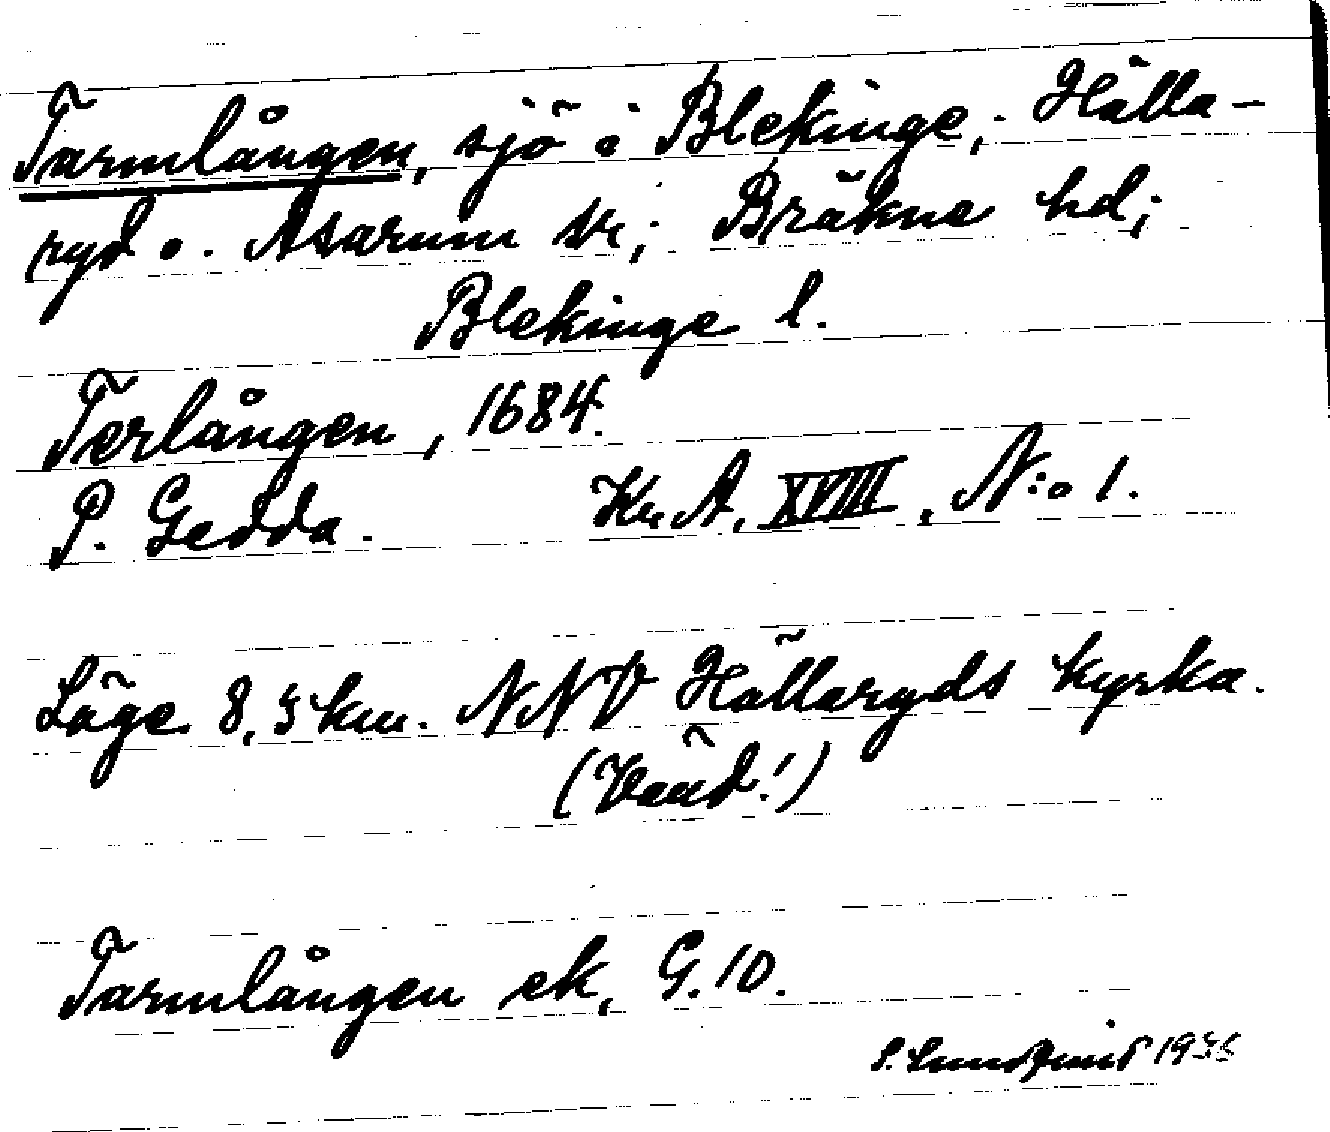 Tarmlången, sjö i Blekinge, Hälla-
ryd o. Asarum sn; Bräkne hd;
Blekinge l.
Terlången, 1684.
P. Gedda. Kr. A, XVIII, N:o 1.
Läge 8,5 km. NNV Hällaryds kyrka.
(Vänd!)
Tarmlången ek, G. 10.
S. Lundqvist 1935